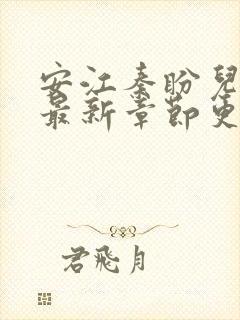 安江秦盼兒
最新章節更
君飛月